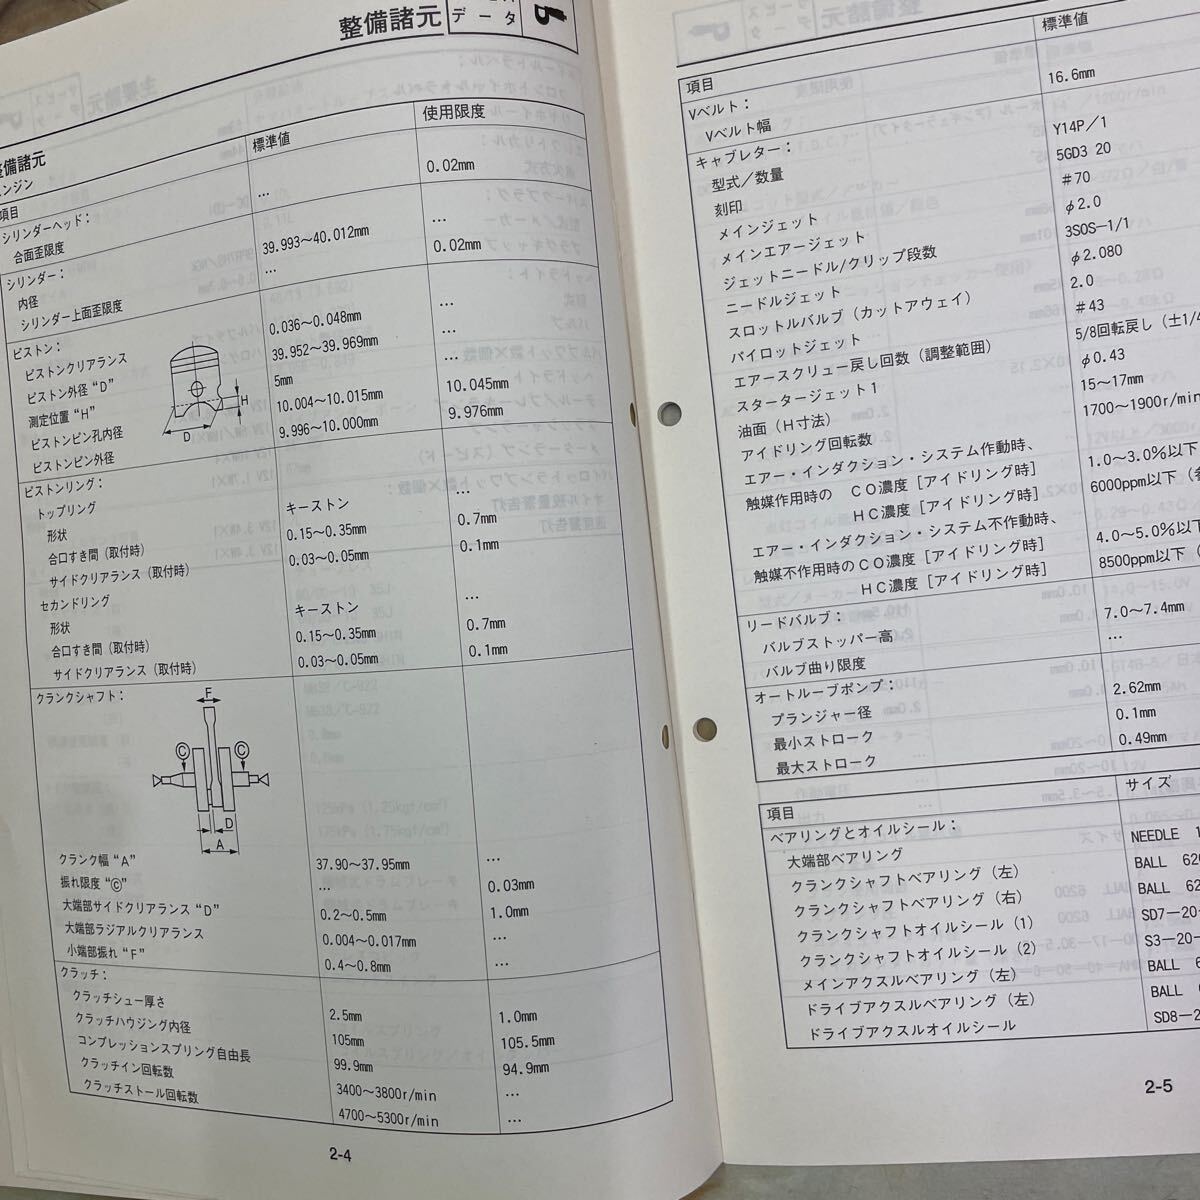 整備諸元
データ
整備諸元
エンジン
項目 標準値 使用限度
シリンダーヘッド：
合面歪限度 … 0.02mm
シリンダー：
内径 39.993～40.012mm …
シリンダー上面歪限度 … 0.02mm
ピストン：
ピストンクリアランス 0.036～0.048mm …
ピストン外径“D” 39.952～39.969mm …
測定位置“H” 5mm …
ピストンピン孔内径 10.004～10.015mm 10.045mm
ピストンピン外径 9.996～10.000mm 9.976mm
H
D
ピストンリング：
トップリング
形状 キーストン …
合口すき間（取付時） 0.15～0.35mm 0.7mm
サイドクリアランス（取付時） 0.03～0.05mm 0.1mm
セカンドリング
形状 キーストン …
合口すき間（取付時） 0.15～0.35mm 0.7mm
サイドクリアランス（取付時） 0.03～0.05mm 0.1mm
クランクシャフト：
F
Ⓒ Ⓒ
D
A
クランク幅“A” 37.90～37.95mm …
振れ限度“Ⓒ” … 0.03mm
大端部サイドクリアランス“D” 0.2～0.5mm 1.0mm
大端部ラジアルクリアランス 0.004～0.017mm …
小端部振れ“F” 0.4～0.8mm …
クラッチ：
クラッチシュー厚さ 2.5mm 1.0mm
クラッチハウジング内径 105mm 105.5mm
コンプレッションスプリング自由長 99.9mm 94.9mm
クラッチイン回転数 3400～3800r/min …
クラッチストール回転数 4700～5300r/min …
2-4
項目 標準値
Vベルト：
Vベルト幅 16.6mm
キャブレター：
型式／数量 Y14P／1
刻印 5GD3 20
メインジェット #70
メインエアージェット φ2.0
ジェットニードル/クリップ段数 3S0S-1/1
ニードルジェット φ2.080
スロットルバルブ（カットアウェイ） 2.0
パイロットジェット #43
エアースクリュー戻し回数（調整範囲） 5/8回転戻し（±1/4
スタータージェット1 φ0.43
油面（H寸法） 15～17mm
アイドリング回転数 1700～1900r/min
エアー・インダクション・システム作動時、
触媒作用時の CO濃度［アイドリング時］ 1.0～3.0%以下
HC濃度［アイドリング時］ 6000ppm以下
エアー・インダクション・システム不作動時、
触媒不作用時のCO濃度［アイドリング時］ 4.0～5.0%以下
HC濃度［アイドリング時］ 8500ppm以下
リードバルブ：
バルブストッパー高 7.0～7.4mm
バルブ曲り限度 …
オートルーブポンプ：
プランジャー径 2.62mm
最小ストローク 0.1mm
最大ストローク 0.49mm
項目 サイズ
ベアリングとオイルシール：
大端部ベアリング NEEDLE
クランクシャフトベアリング（左） BALL
クランクシャフトベアリング（右） BALL
クランクシャフトオイルシール（1） SD7-20-
クランクシャフトオイルシール（2） S3-20-
メインアクスルベアリング（左） BALL
ドライブアクスルベアリング（左） BALL
ドライブアクスルオイルシール SD8-2
2-5